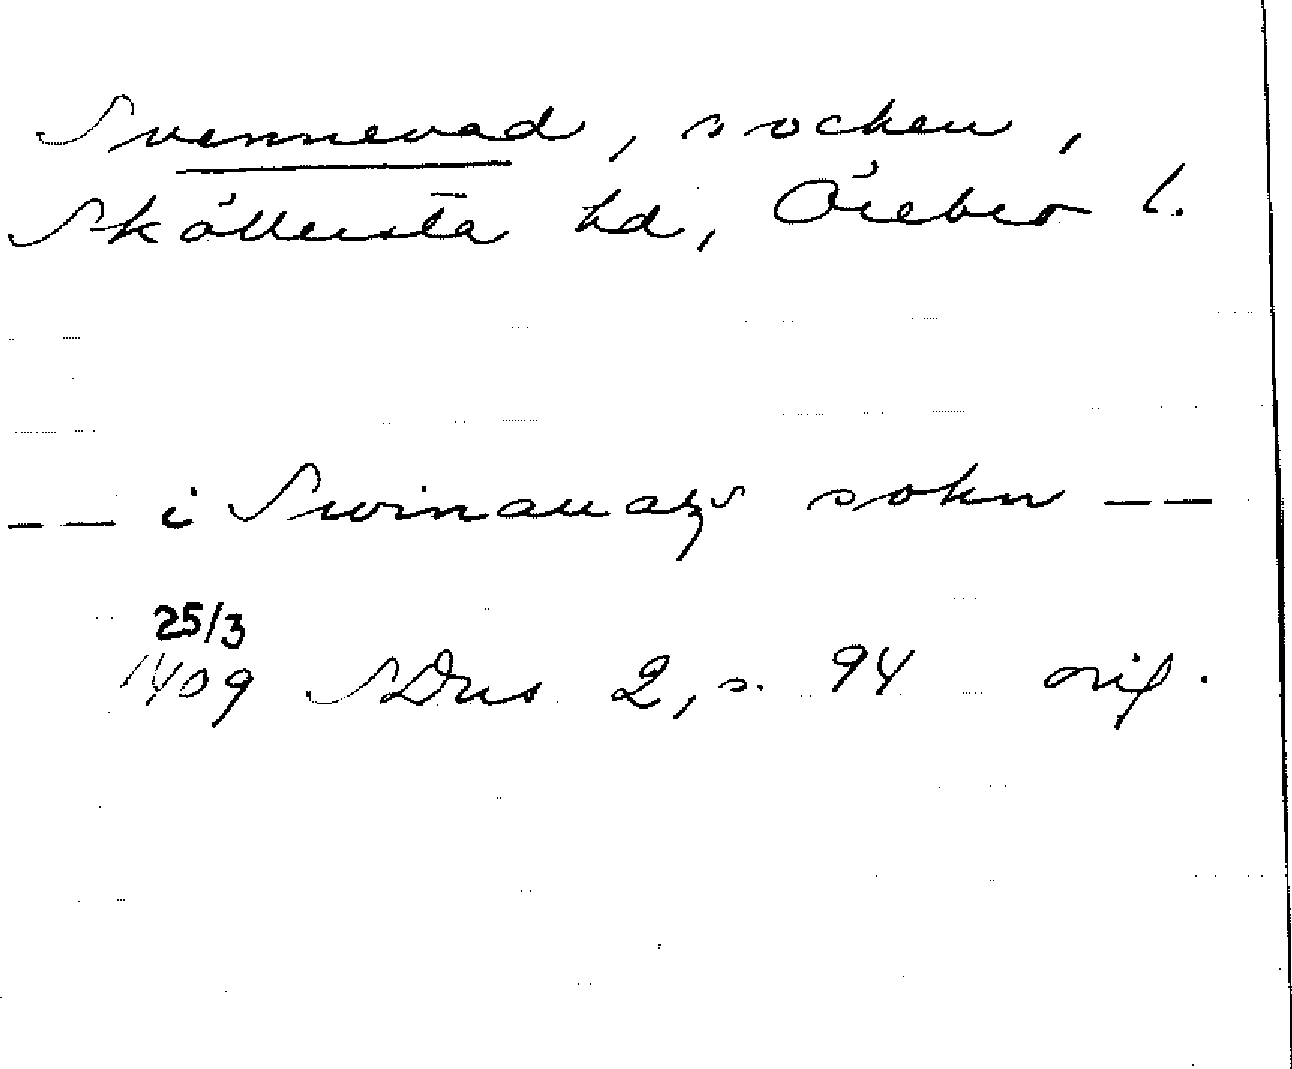 Svennevad, socken,
Sköllersta hd, Örebro l.
-- i Swinauazs sokn --
25/3
1409 SDns 2, s. 94 orig.